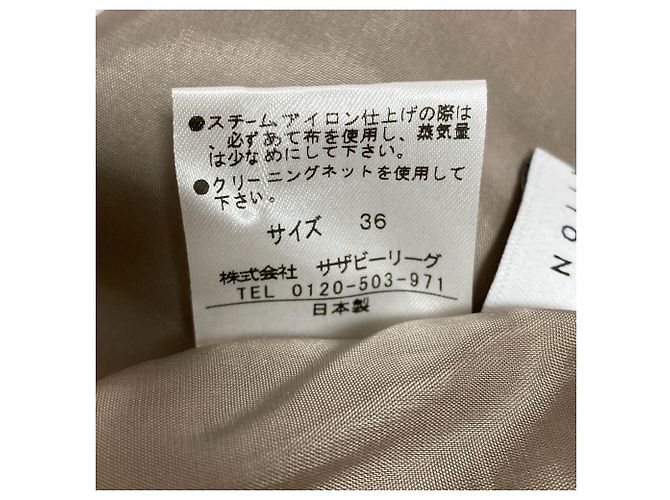 ●スチームアイロン仕上げの際は
、必ずあて布を使用し、蒸気量
は少なめにして下さい。
●クリーニングネットを使用して
下さい。
サイズ 36
株式会社 サザビーリーグ
TEL 0120-503-971
日本製
TION